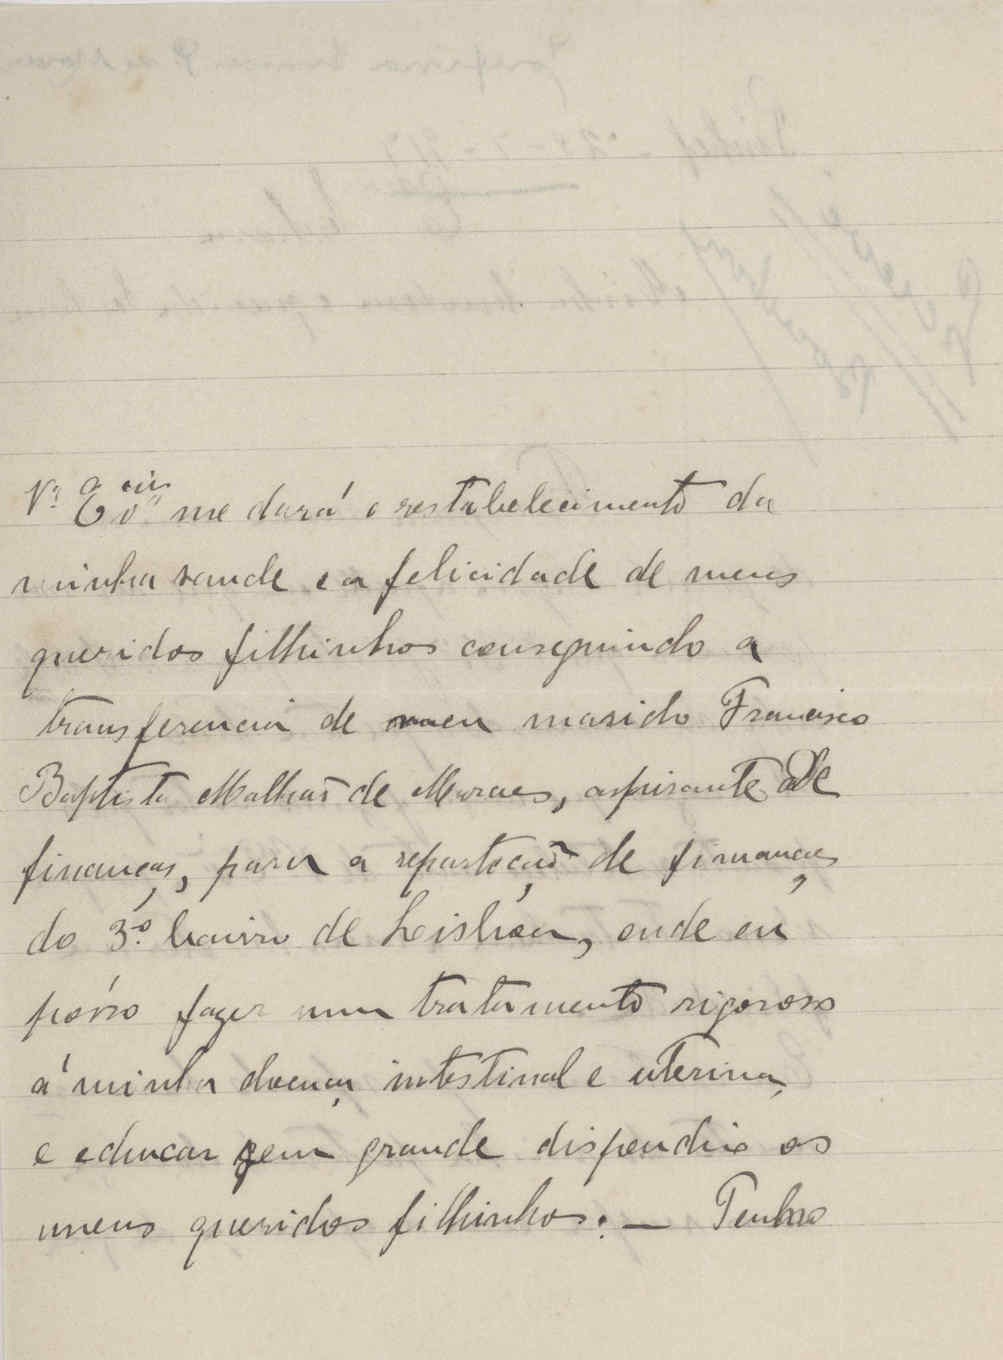 V.ª Ex.cia me dará o restabelecimento da
minha saude e a felicidade de meus
queridos filhinhos conseguindo a
transferencia de meu marido Francisco
Baptista Malhão de Moraes, aspirante de
finanças, para a repartição de finanças
do 3.º bairro de Leisbôa, onde eu
pósso fazer um tratamento rigoroso
á minha doença intestinal e uterina,
e educar sem grande dispendio os
meus queridos filhinhos. — Tenho